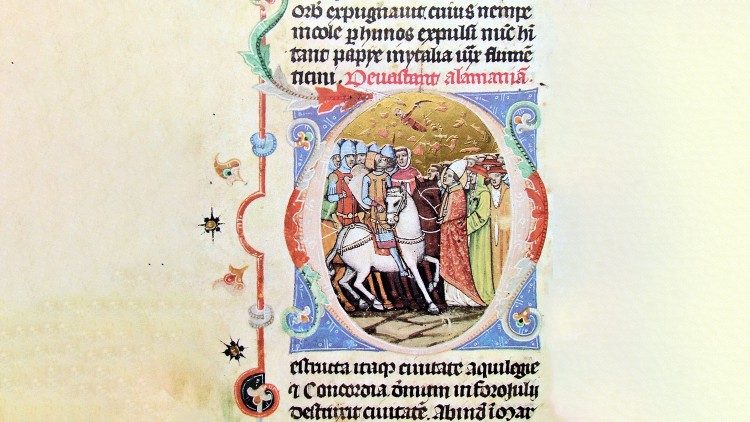 orb̄ expugnauit. cuius nempe
incole p hunos expulsi nūc hi
tant papye in ytalia
ticini. Deuastant alamaniā.
estructa itaqꝫ ciuitate aquilegie
⁊ Concordia. in foroiuly
destruxit ciuitatē. Abinđ